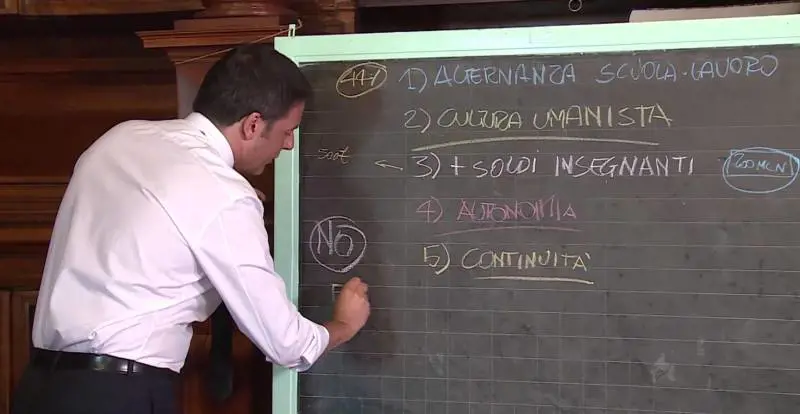 44% 1) ALTERNANZA SCUOLA-LAVORO
2) CULTURA UMANISTA
500€ ← 3) + SOLDI INSEGNANTI 200 MLN
4) AUTONOMIA
NO 5) CONTINUITÀ